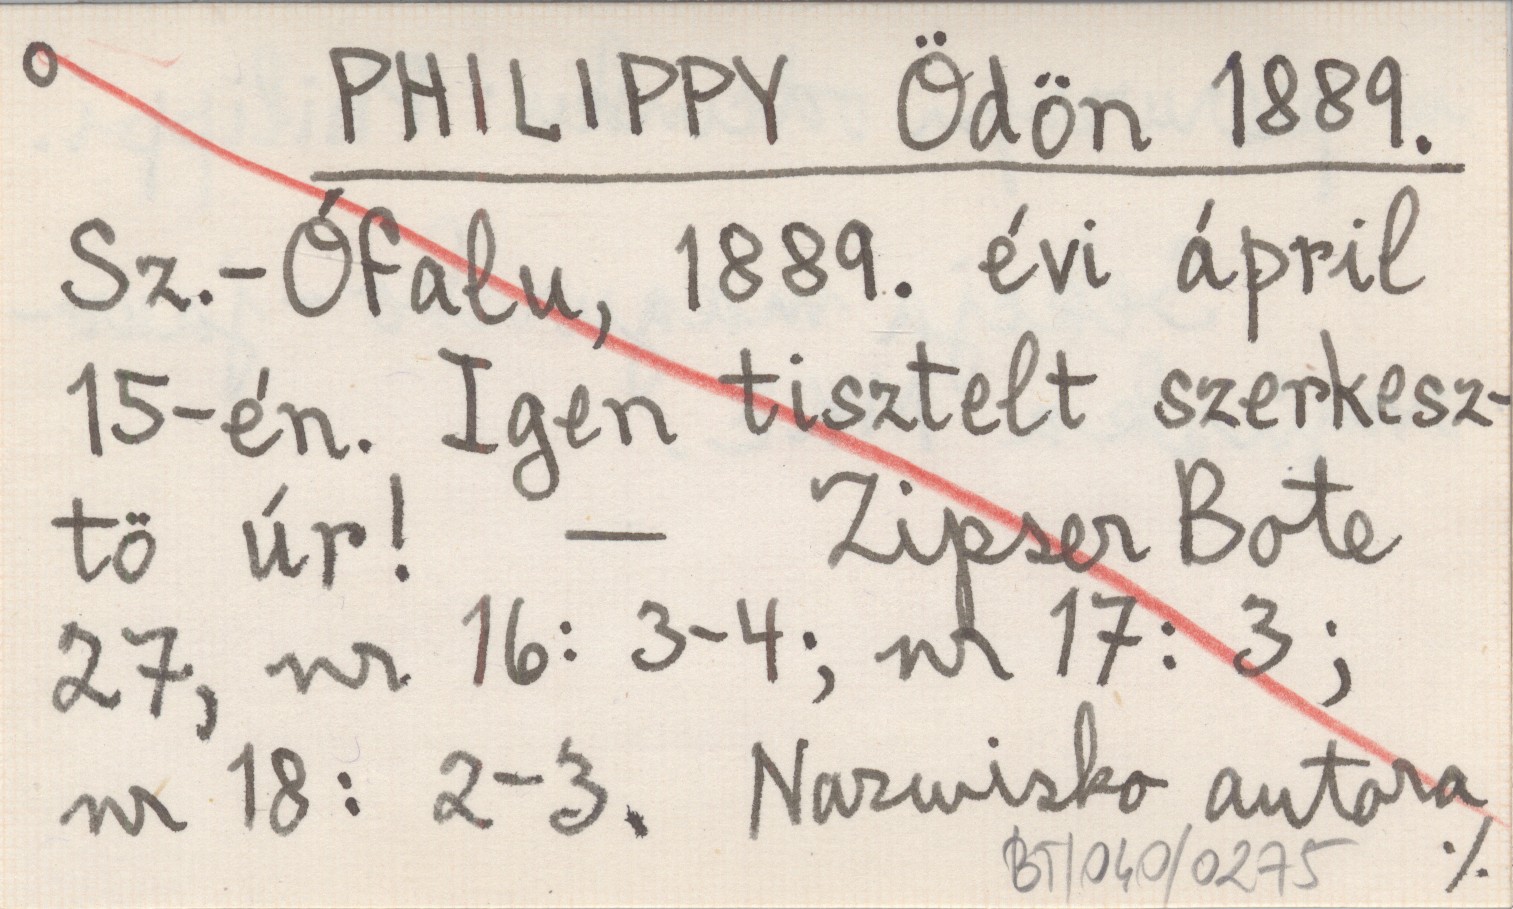 PHILIPPY Ödön 1889.
Sz.-Ófalu, 1889. évi ápril
15-én. Igen tisztelt szerkesz-
tö úr! — Zipser Bote
27, nr 16: 3-4; nr 17: 3;
nr 18: 2-3. Nazwisko autora
./.
BT/040/0275